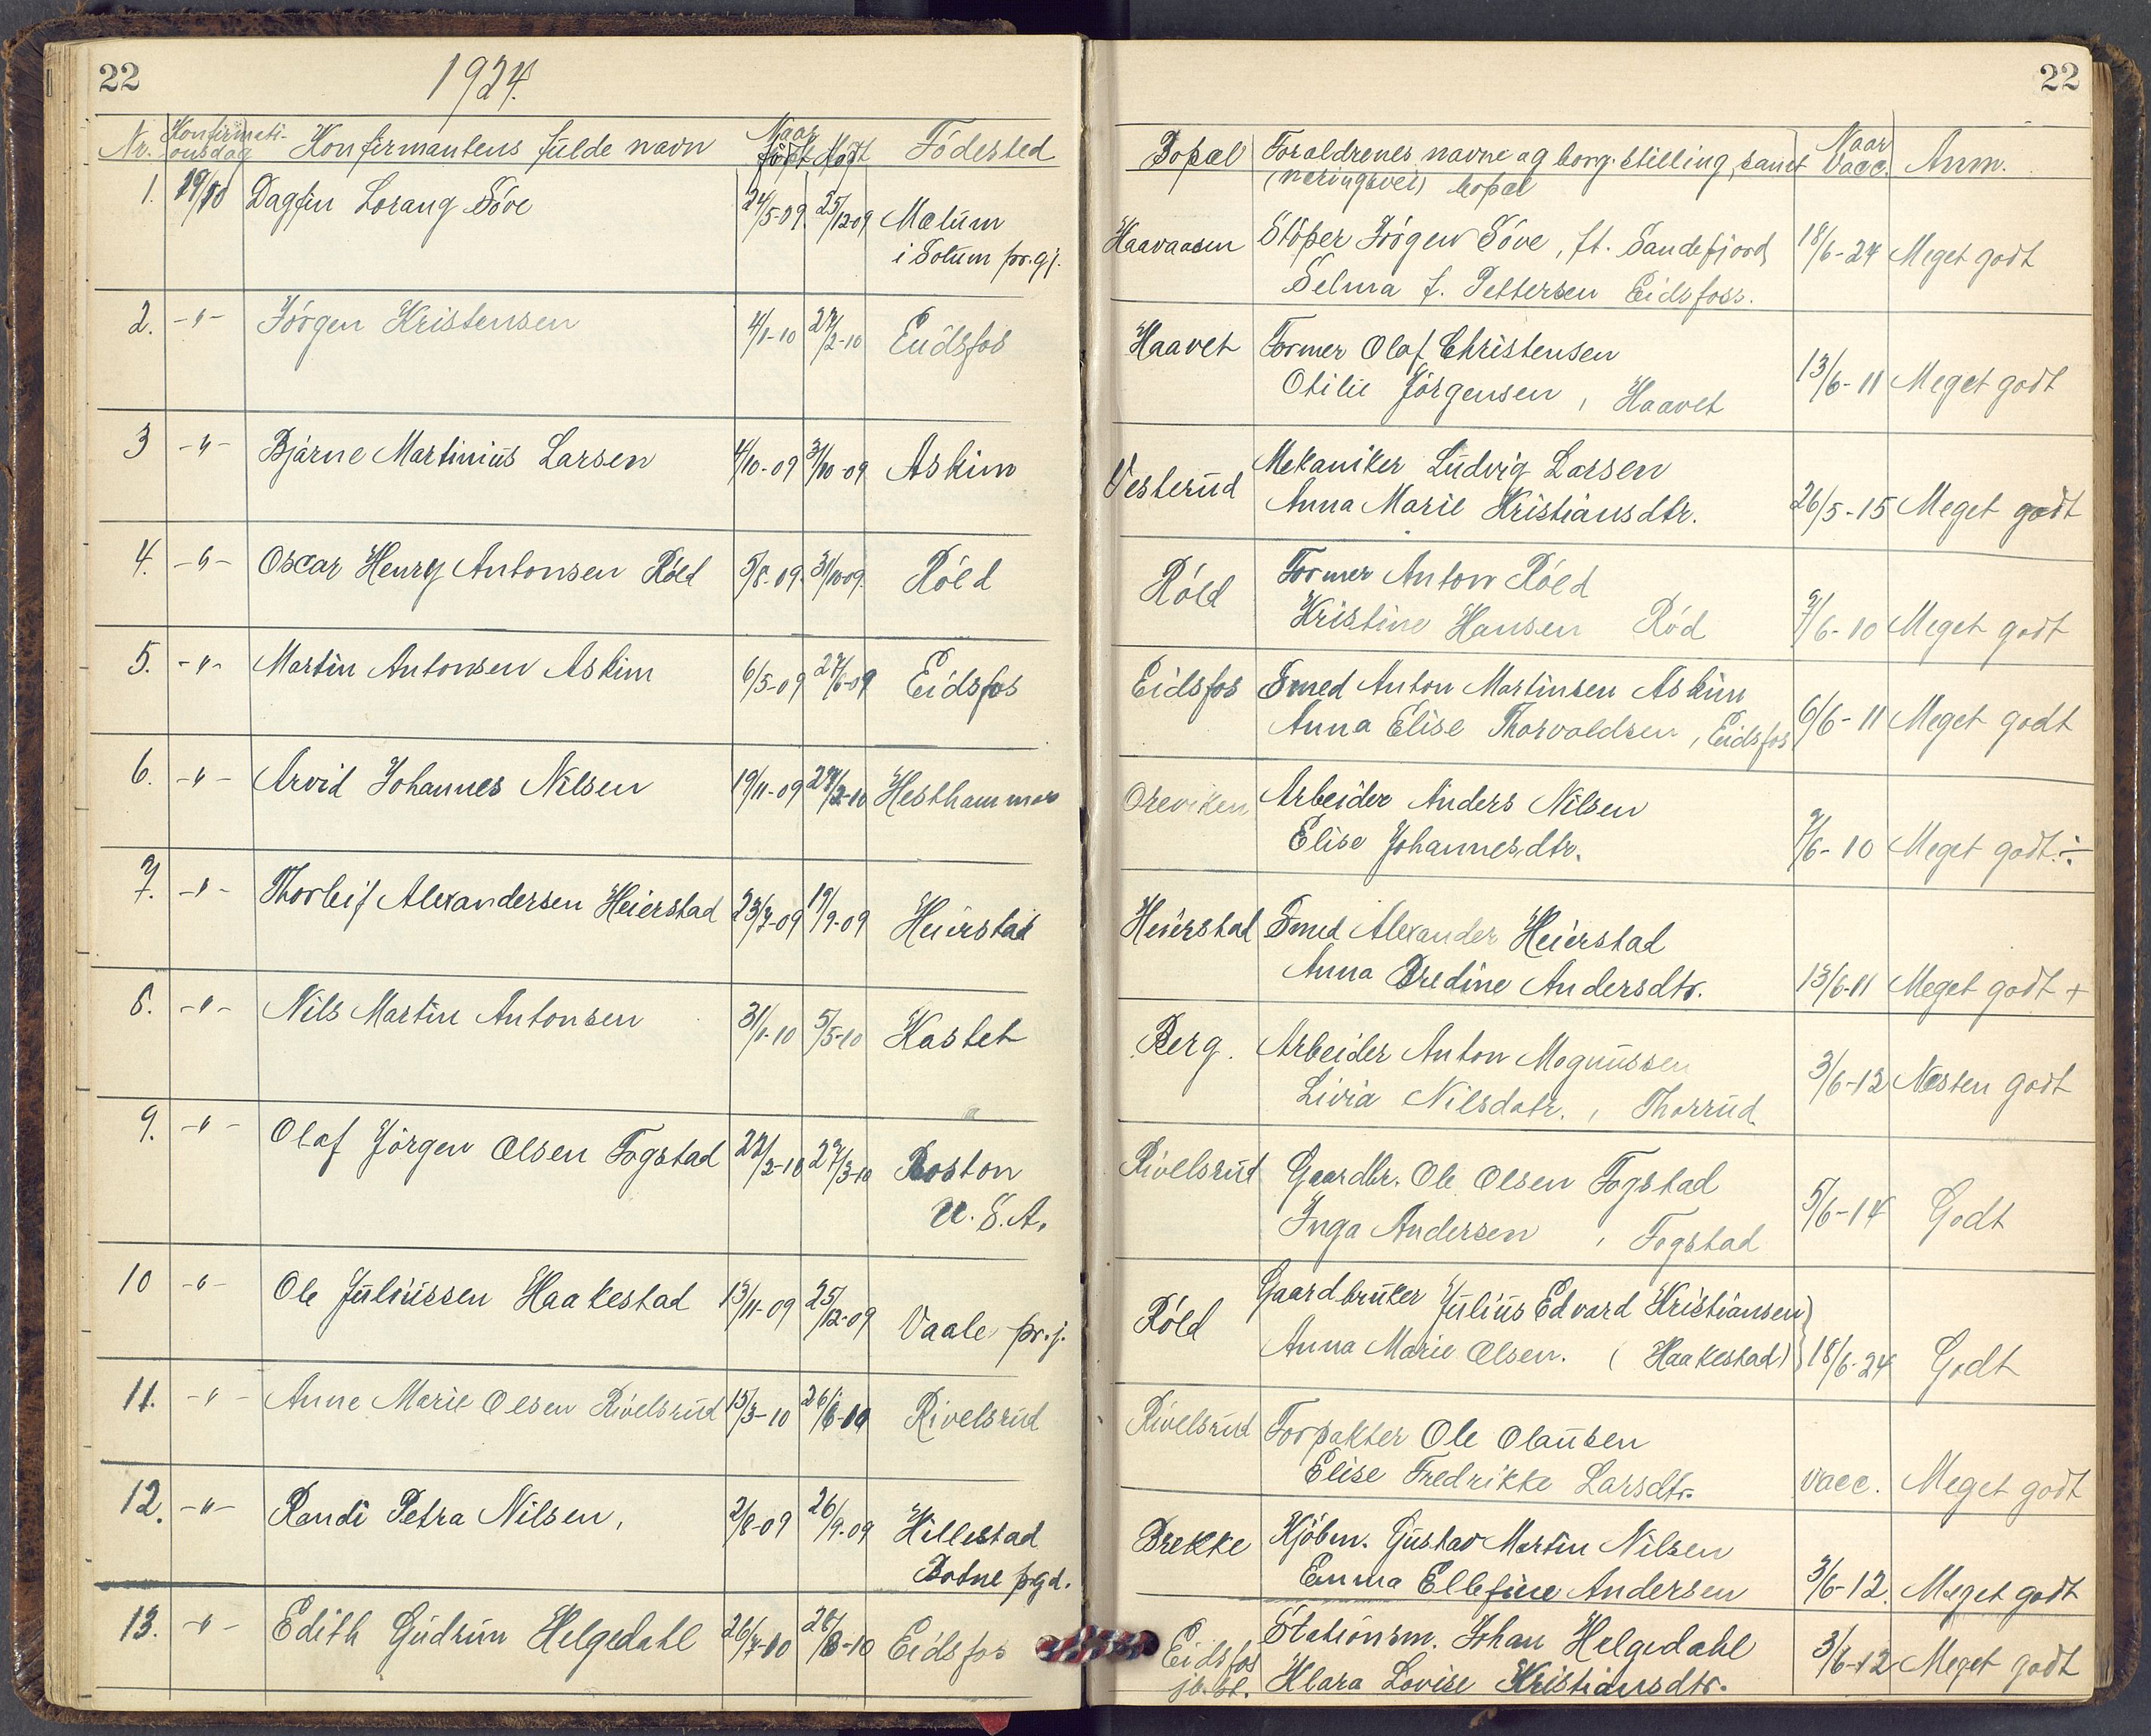 22
1924.
Nr. Konfirmati-
onsdag Konfirmantens fulde navn Naar
født døpt Fødested
1. 19/10 Dagfin Lorang Söve 24/5-09 25/12-09 Mælum
i Solum pr.gj.
2. -"- Jörgen Kristensen 4/1-10 27/2-10 Eidsfos
3 -"- Bjarne Martinius Larsen 4/10-09 31/10-09 Askim
4. -"- Oscar Henry Antonsen Röed 5/8-09 31/10-09 Röed
5. -"- Martin Antonsen Askim 6/5-09 27/6-09 Eidsfos
6. -"- Arvid Johannes Nilsen 19/11-09 27/2-10 Hesthammer
7. -"- Thorleif Alexandersen Heierstad 23/7-09 19/9-09 Heierstad
8. -"- Nils Martin Antonsen 31/1-10 5/5-10 Kastet
9. -"- Olaf Jörgen Olsen Fogstad 22/2-10 27/3-10 Boston
U.S.A.
10 -"- Ole Juliussen Haakestad 13/11-09 25/12-09 Vaale pr.j.
11. -"- Anne Marie Olsen Rivelsrud 15/3-10 26/6-10 Rivelsrud
12. -"- Randi Petra Nilsen, 2/8-09 26/9-09 Hillestad
Botne pgd.
13. -"- Edith Gudrun Helgedahl 26/7-10 28/8-10 Eidsfos
22
Bopæl Foraldrenes navne og borg. stilling, samt Naar
vacc. Anm.
(næringsvei) bopæl
Haavaasen Stöper Jörgen Söve, ft. Sandefjord 18/6-24 Meget godt
Selma f. Pettersen Eidsfoss.
Haavet Former Olaf Christensen
Otilie Jörgensen, Haavet 13/6-11 Meget godt
Vesterud Mekaniker Ludvig Larsen
Anna Marie Kristiansdtr. 26/5-15 Meget godt
Röed Former Anton Röed
Kristine Hansen Röd 7/6-10 Meget godt
Eidsfos Smed Anton Martinsen Askim
Anna Elise Thorvaldsen, Eidsfos 6/6-11 Meget godt
Oreviken Arbeider Anders Nilsen
Elise Johannesdtr. 7/6-10 Meget godt ÷
Heierstad Smed Alexander Heierstad
Anna Bredine Andersdtr. 13/6-11 Meget godt +
Berg. Arbeider Anton Magnussen
Livia Nilsdatr., Thorrud 3/6-12 Næsten godt
Rivelsrud Gaardbr. Ole Olsen Fogstad
Inga Andersen, Fogstad 5/6-14 Godt
Röed Gaardbruker Julius Edvard Kristiansen
Anna Marie Olsen. (Haakestad) 18/6-24 Godt
Rivelsrud Forpakter Ole Olausen
Elise Fredrikke Larsdtr. vacc. Meget godt
Brekke Kjöbm. Gustav Martin Nilsen
Emma Ellefine Andersen 3/6-12. Meget godt
Eidsfos Stationsm. Johan Helgedahl
jb.st. Klara Lovise Kristiansdtr. 3/6-12 Meget godt